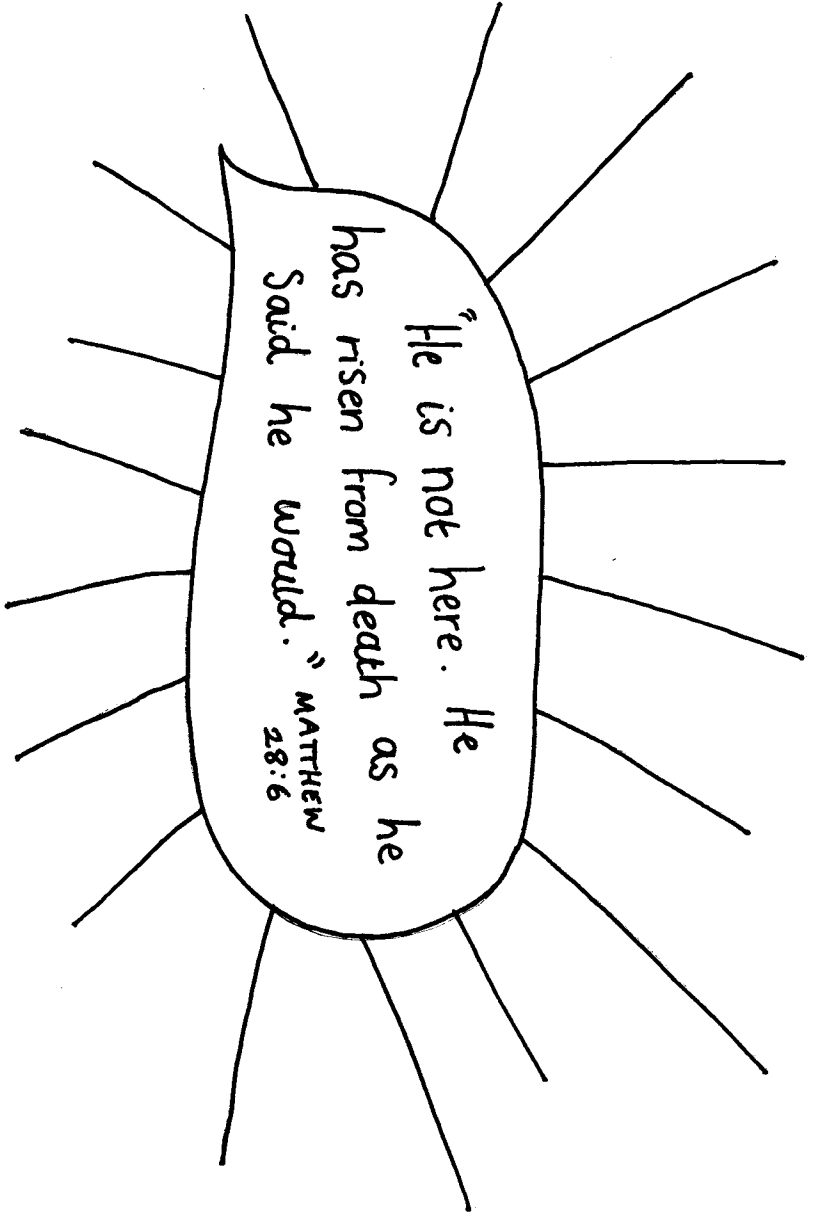 "He is not here. He
has risen from death as he
said he would." MATTHEW
28:6